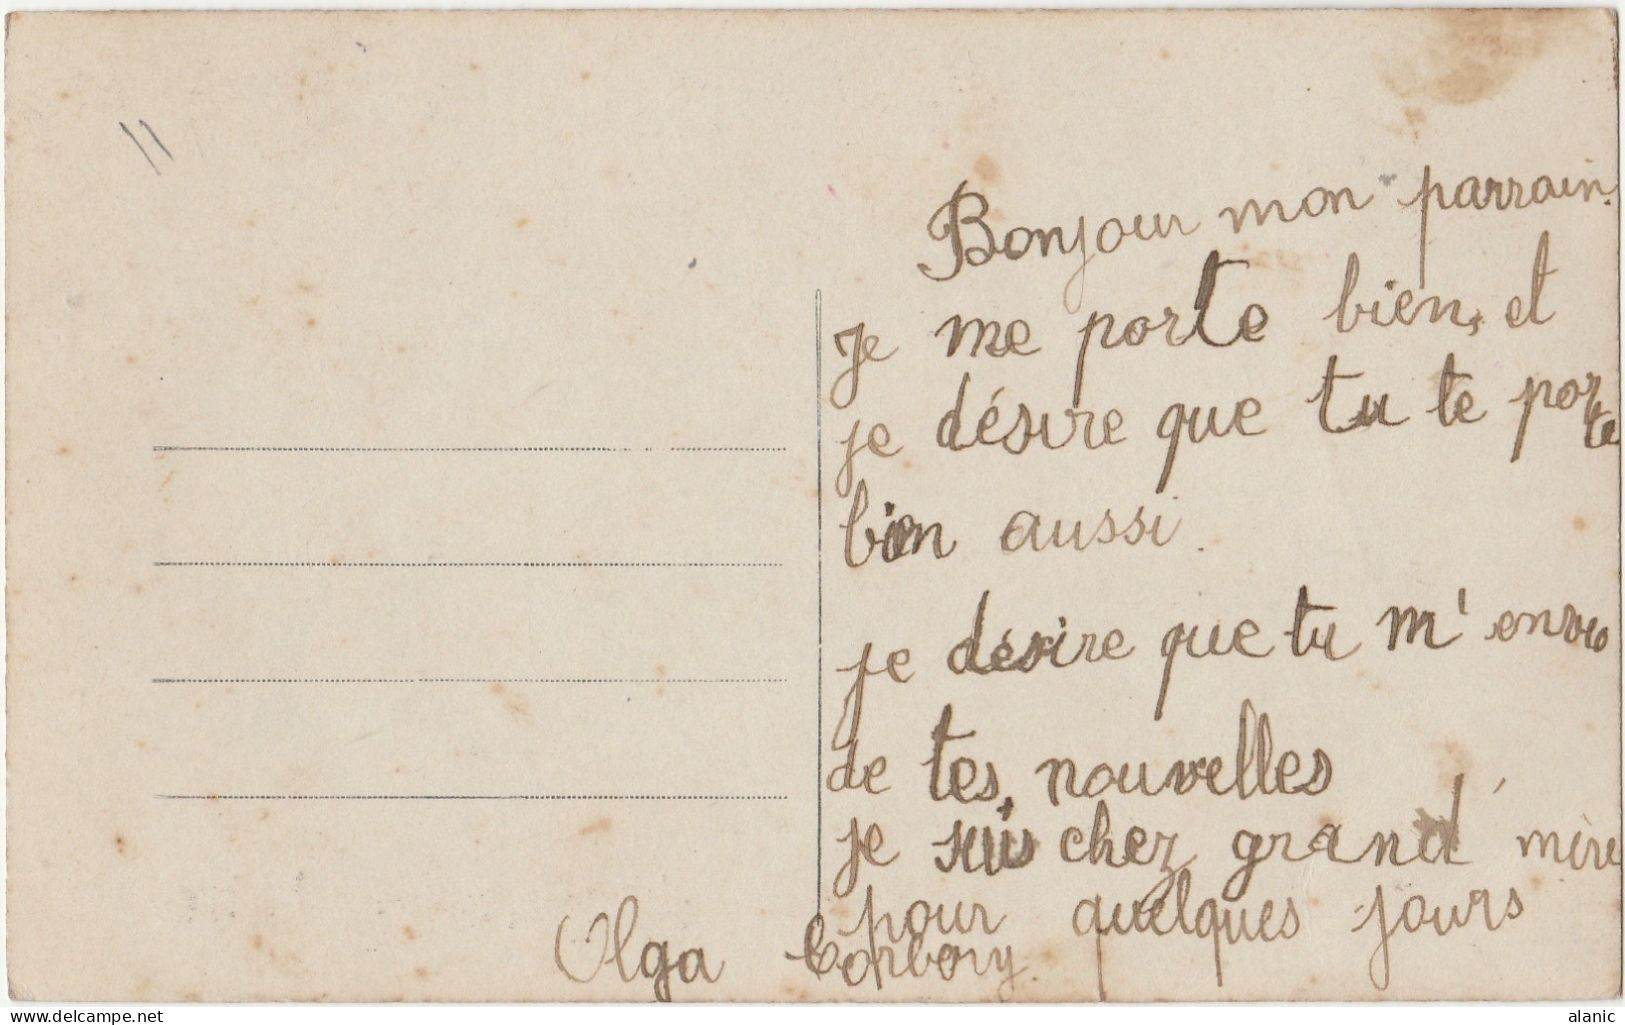 Bonjour mon parrain.
je me porte bien, et
je désire que tu te porte
bien aussi.
je désire que tu m'envoie
de tes nouvelles
je suis chez grand'mère
pour quelques jours
Olga Corbery.
www.delcampe.net
alanic